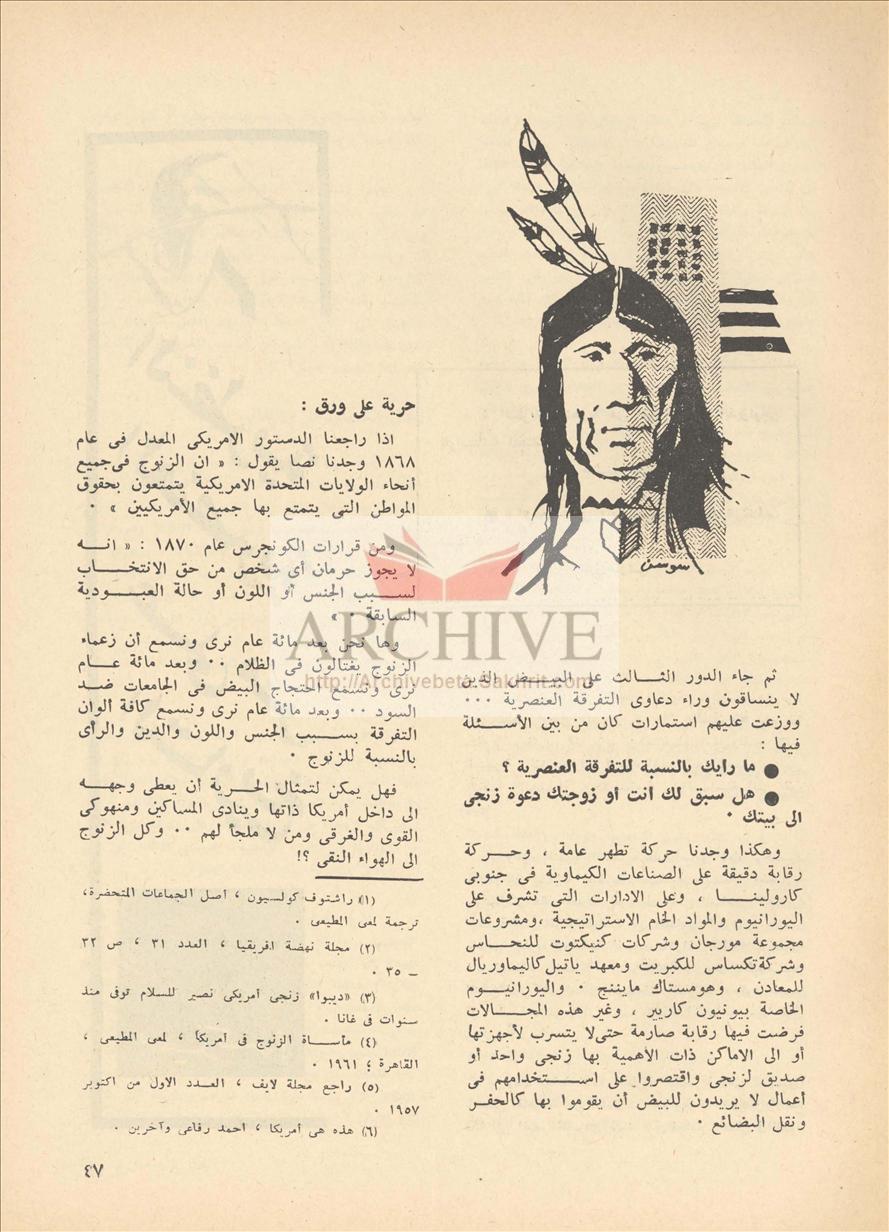 سوسن
ثم جاء الدور الثالث على البيض الذين
لا ينساقون وراء دعاوى التفرقة العنصرية ٠٠٠
ووزعت عليهم استمارات كان من بين الأسئلة
فيها :
● ما رايك بالنسبة للتفرقة العنصرية ؟
● هل سبق لك انت أو زوجتك دعوة زنجى
الى بيتك ٠
وهكذا وجدنا حركة تطهر عامة ، وحركة
رقابة دقيقة على الصناعات الكيماوية فى جنوبى
كارولينا ، وعلى الادارات التى تشرف على
اليورانيوم والمواد الخام الاستراتيجية ،ومشروعات
مجموعة مورجان وشركات كنيكتوت للنحاس
وشركة تكساس للكبريت ومعهد ياتيل كاليماوريال
للمعادن ، وهومستاك ماينننج ٠ واليورانيوم
الخاصة بيونيون كاربير ، وغير هذه المجالات
فرضت فيها رقابة صارمة حتى لا يتسرب لأجهزتها
أو الى الاماكن ذات الأهمية بها زنجى واحد أو
صديق لزنجى واقتصروا على استخدامهم فى
أعمال لا يريدون للبيض أن يقوموا بها كالحفر
ونقل البضائع ٠
حرية على ورق :
اذا راجعنا الدستور الامريكى المعدل فى عام
١٨٦٨ وجدنا نصا يقول : « ان الزنوج فى جميع
أنحاء الولايات المتحدة الامريكية يتمتعون بحقوق
المواطن التى يتمتع بها جميع الأمريكيين » ٠
ومن قرارات الكونجرس عام ١٨٧٠ : « انه
لا يجوز حرمان أى شخص من حق الانتخاب
لسبب الجنس أو اللون أو حالة العبودية
السابقة ٠ »
وها نحن بعد مائة عام نرى ونسمع أن زعماء
الزنوج يغتالون فى الظلام ٠٠ وبعد مائة عام
نرى ونسمع احتجاج البيض فى الجامعات ضد
السود ٠٠ وبعد مائة عام نرى ونسمع كافة ألوان
التفرقة بسبب الجنس واللون والدين والرأى
بالنسبة للزنوج ٠
فهل يمكن لتمثال الحرية أن يعطى وجهه
الى داخل أمريكا ذاتها وينادى المساكين ومنهوكى
القوى والغرقى ومن لا ملجأ لهم ٠٠ وكل الزنوج
الى الهواء النقى ؟!
(١) راشتوف كولسيون ، أصل الجماعات المتحضرة،
ترجمة لمعى المطيعى ٠
(٢) مجلة نهضة افريقيا ، العدد ٣١ ، ص ٣٢
ـ ٣٥ ٠
(٣) «ديبوا» زنجى أمريكى نصير للسلام توفى منذ
سنوات فى غانا ٠
(٤) مأساة الزنوج فى أمريكا ، لمعى المطيعى ،
القاهرة ؛ ١٩٦١ ٠
(٥) راجع مجلة لايف ، العدد الاول من اكتوبر
١٩٥٧ ٠
(٦) هذه هى أمريكا ، احمد رفاعى وآخرين ٠
٤٧
ARCHIVE
http://Archivebeta.Sakhrit.com